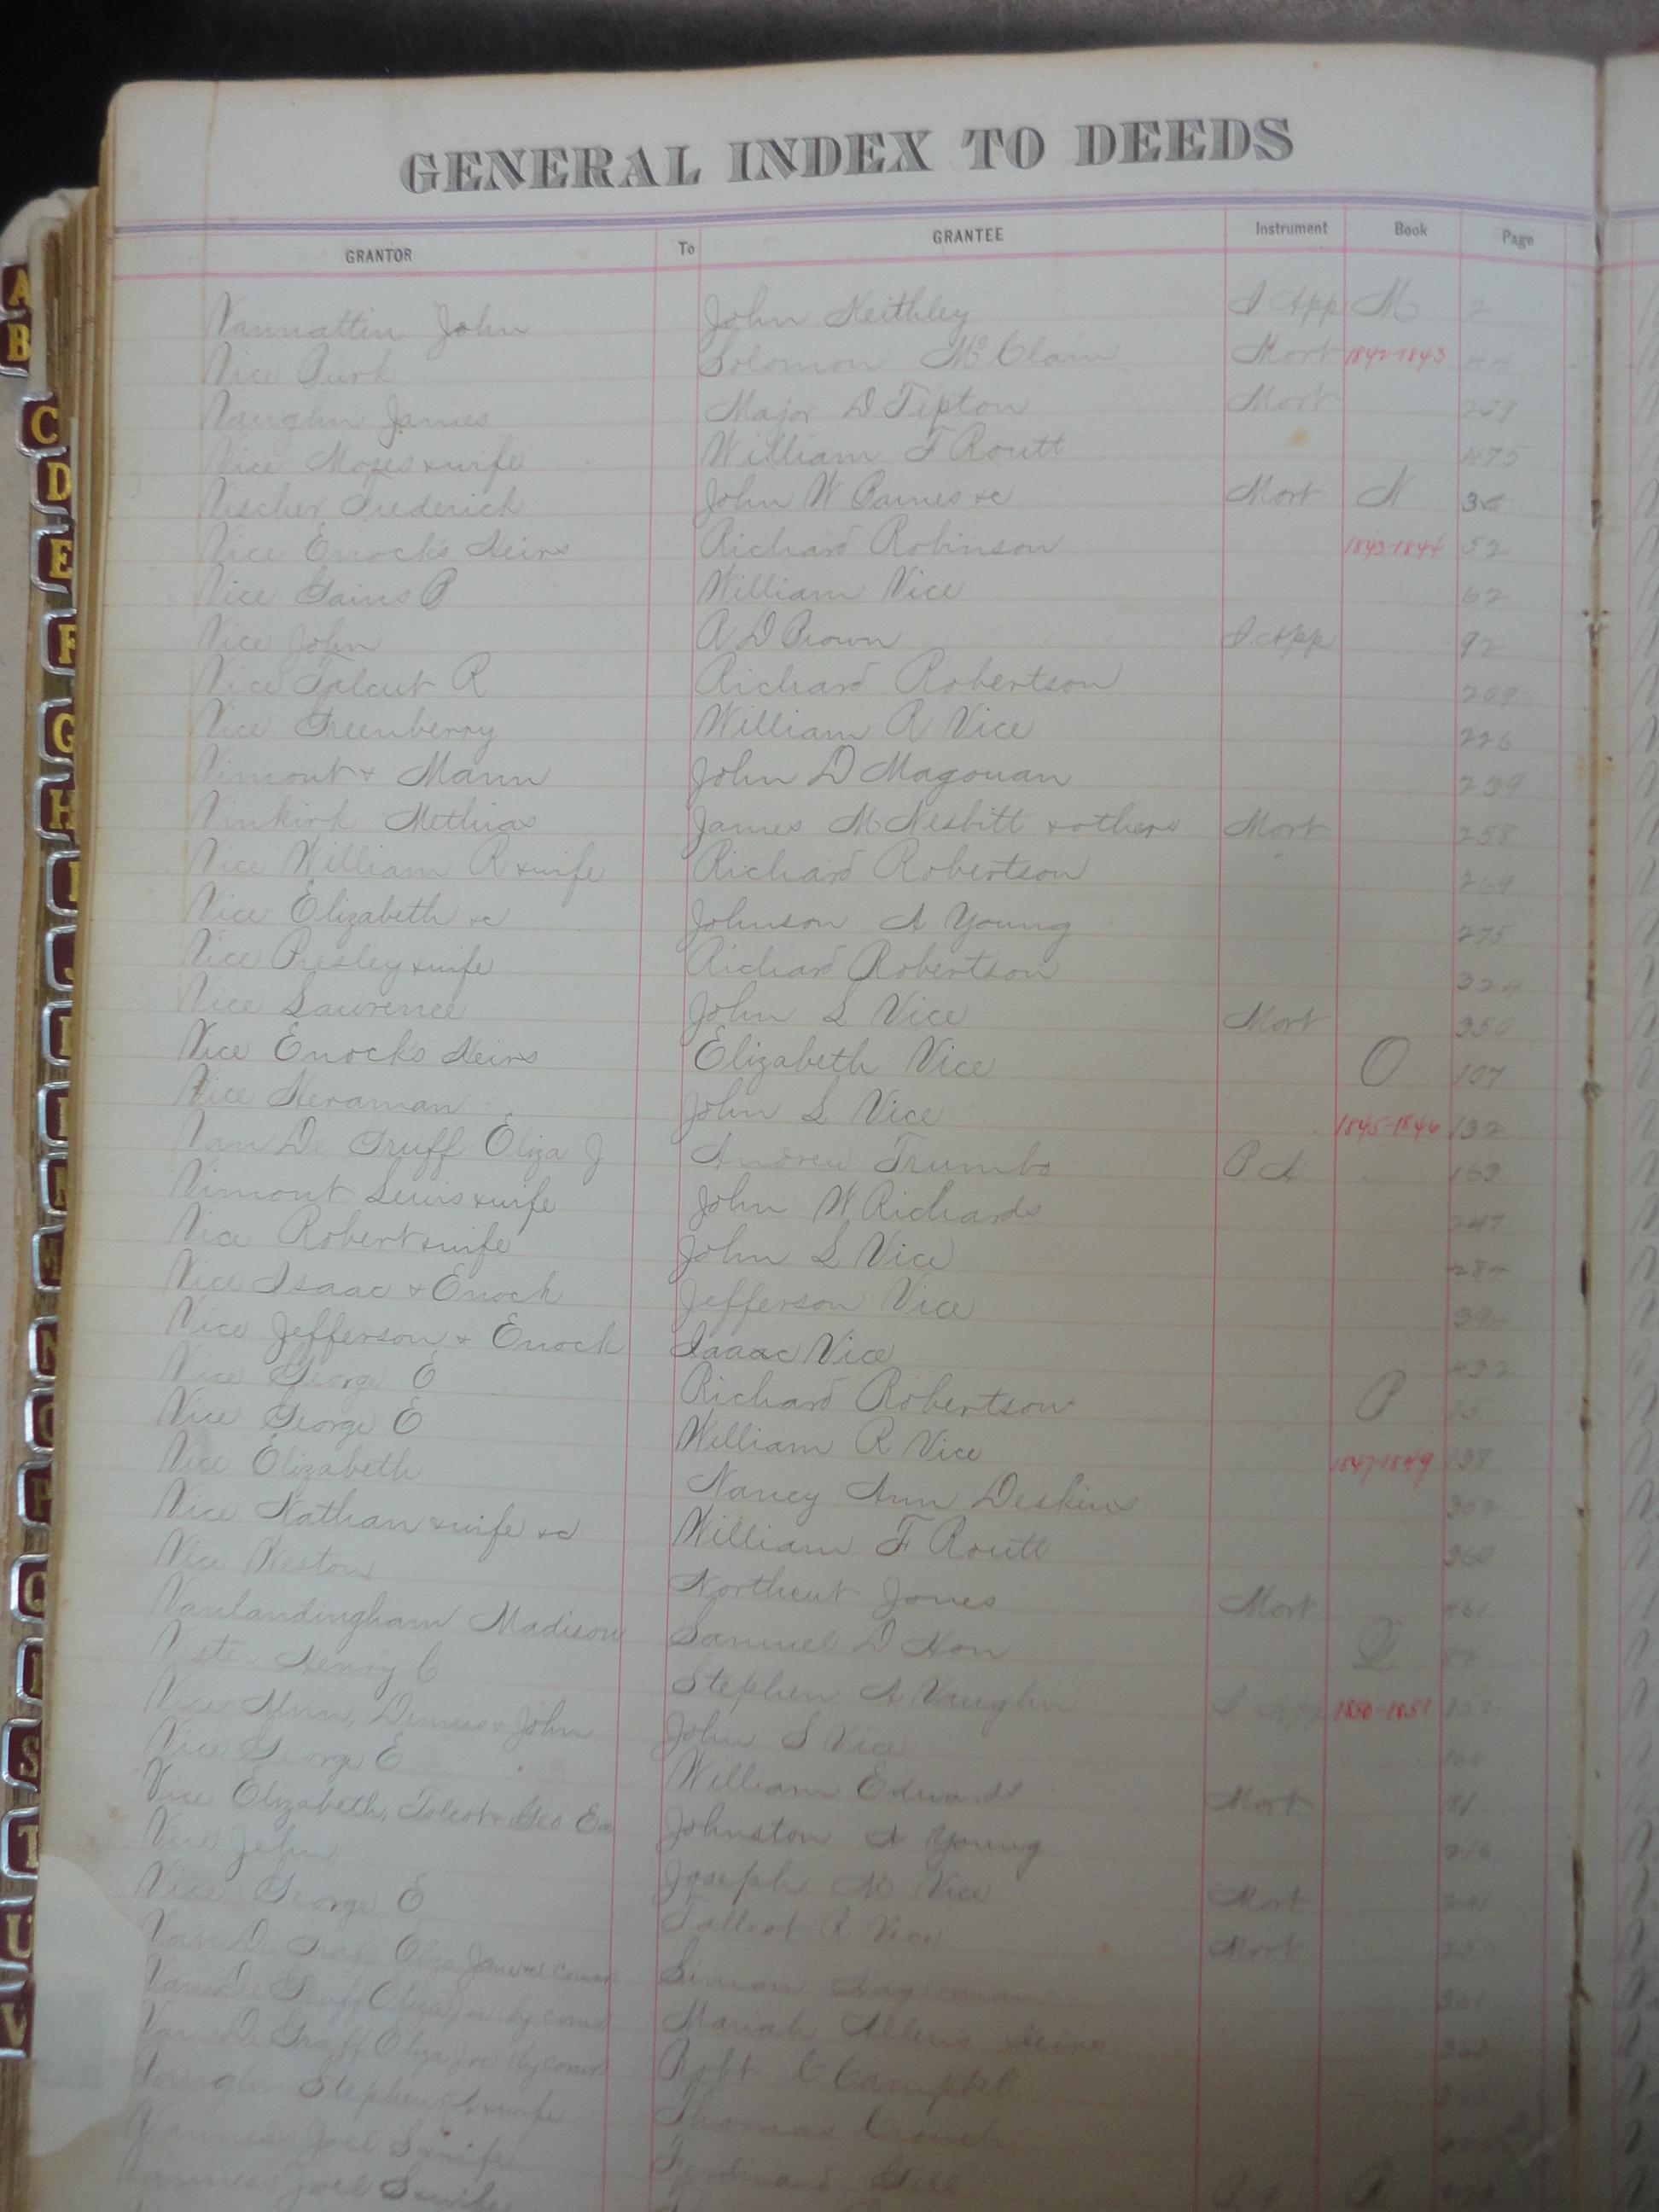 GENERAL INDEX TO DEEDS
GRANTOR To GRANTEE Instrument Book Page
Vannattin John John Keithley I. App M 2
Vice Burk Solomon McClain Mort 1842-1843 44
Vaughn James Major D. Tipton Mort
Vice Moses & wife William F Routt 475
Vischer Frederick John W Barnes &c Mort N 35
Vice Enock's Heirs Richard Robinson 1843-1844 52
Vice Gains B William Vice 62
Vice John A D Brown I. App 92
Vice Talcut R Richard Robertson 209
Vice Greenberry William R Vice 226
Vimont & Mann John D Magowan 239
Vinkirk Methias James M Nesbitt & others Mort 258
Vice William R & wife Richard Robertson 269
Vice Elizabeth &c Johnson A Young 275
Vice Presley & wife Richard Robertson 324
Vice Lawrence John S Vice Mort 350
Vice Enock's Heirs Elizabeth Vice O 107
Vice Heraman John S Vice 1845-1846 132
Van De Gruff Eliza J Andrew Trumbo P. A 163
Vimont Lewis & wife John W Richards 247
Vice Robert & wife John S Vice 284
Vice Isaac & Enock Jefferson Vice 394
Vice Jefferson & Enock Isaac Vice 432
Vice George E Richard Robertson P 15
Vice George E William R Vice 1847-1849 138
Vice Elizabeth Nancy Ann Deskin 302
Vice Nathan & wife &c William F Routt 360
Vice Weston Northcut Jones Mort 461
Vanlandingham Madison Samuel D Hon Q
Vester Henry C Stephen A Vaughn I App 1850-1851
Vice Ann, Dennis & John John S Vice
Vice George E William Edward Mort
Vice Elizabeth, Tolcot & Geo Johnston A Young 216
Vice John Joseph M Vice Mort
Vice George E Tallcot R Vice Mort
Van De Graff Eliza Jane Simon
Van De Graff Eliza by comr Mariah Allen's Heirs
Van De Graff Eliza by comr Robt C Campbell
Vaughn Stephen A & wife Thomas Crouch
Vanness Joel S & wife Ferdinand Gill
Vanness Joel S & wife
A
B
C
D
E
F
G
H
I
J
K
L
M
N
O
P
Q
S
T
U
V